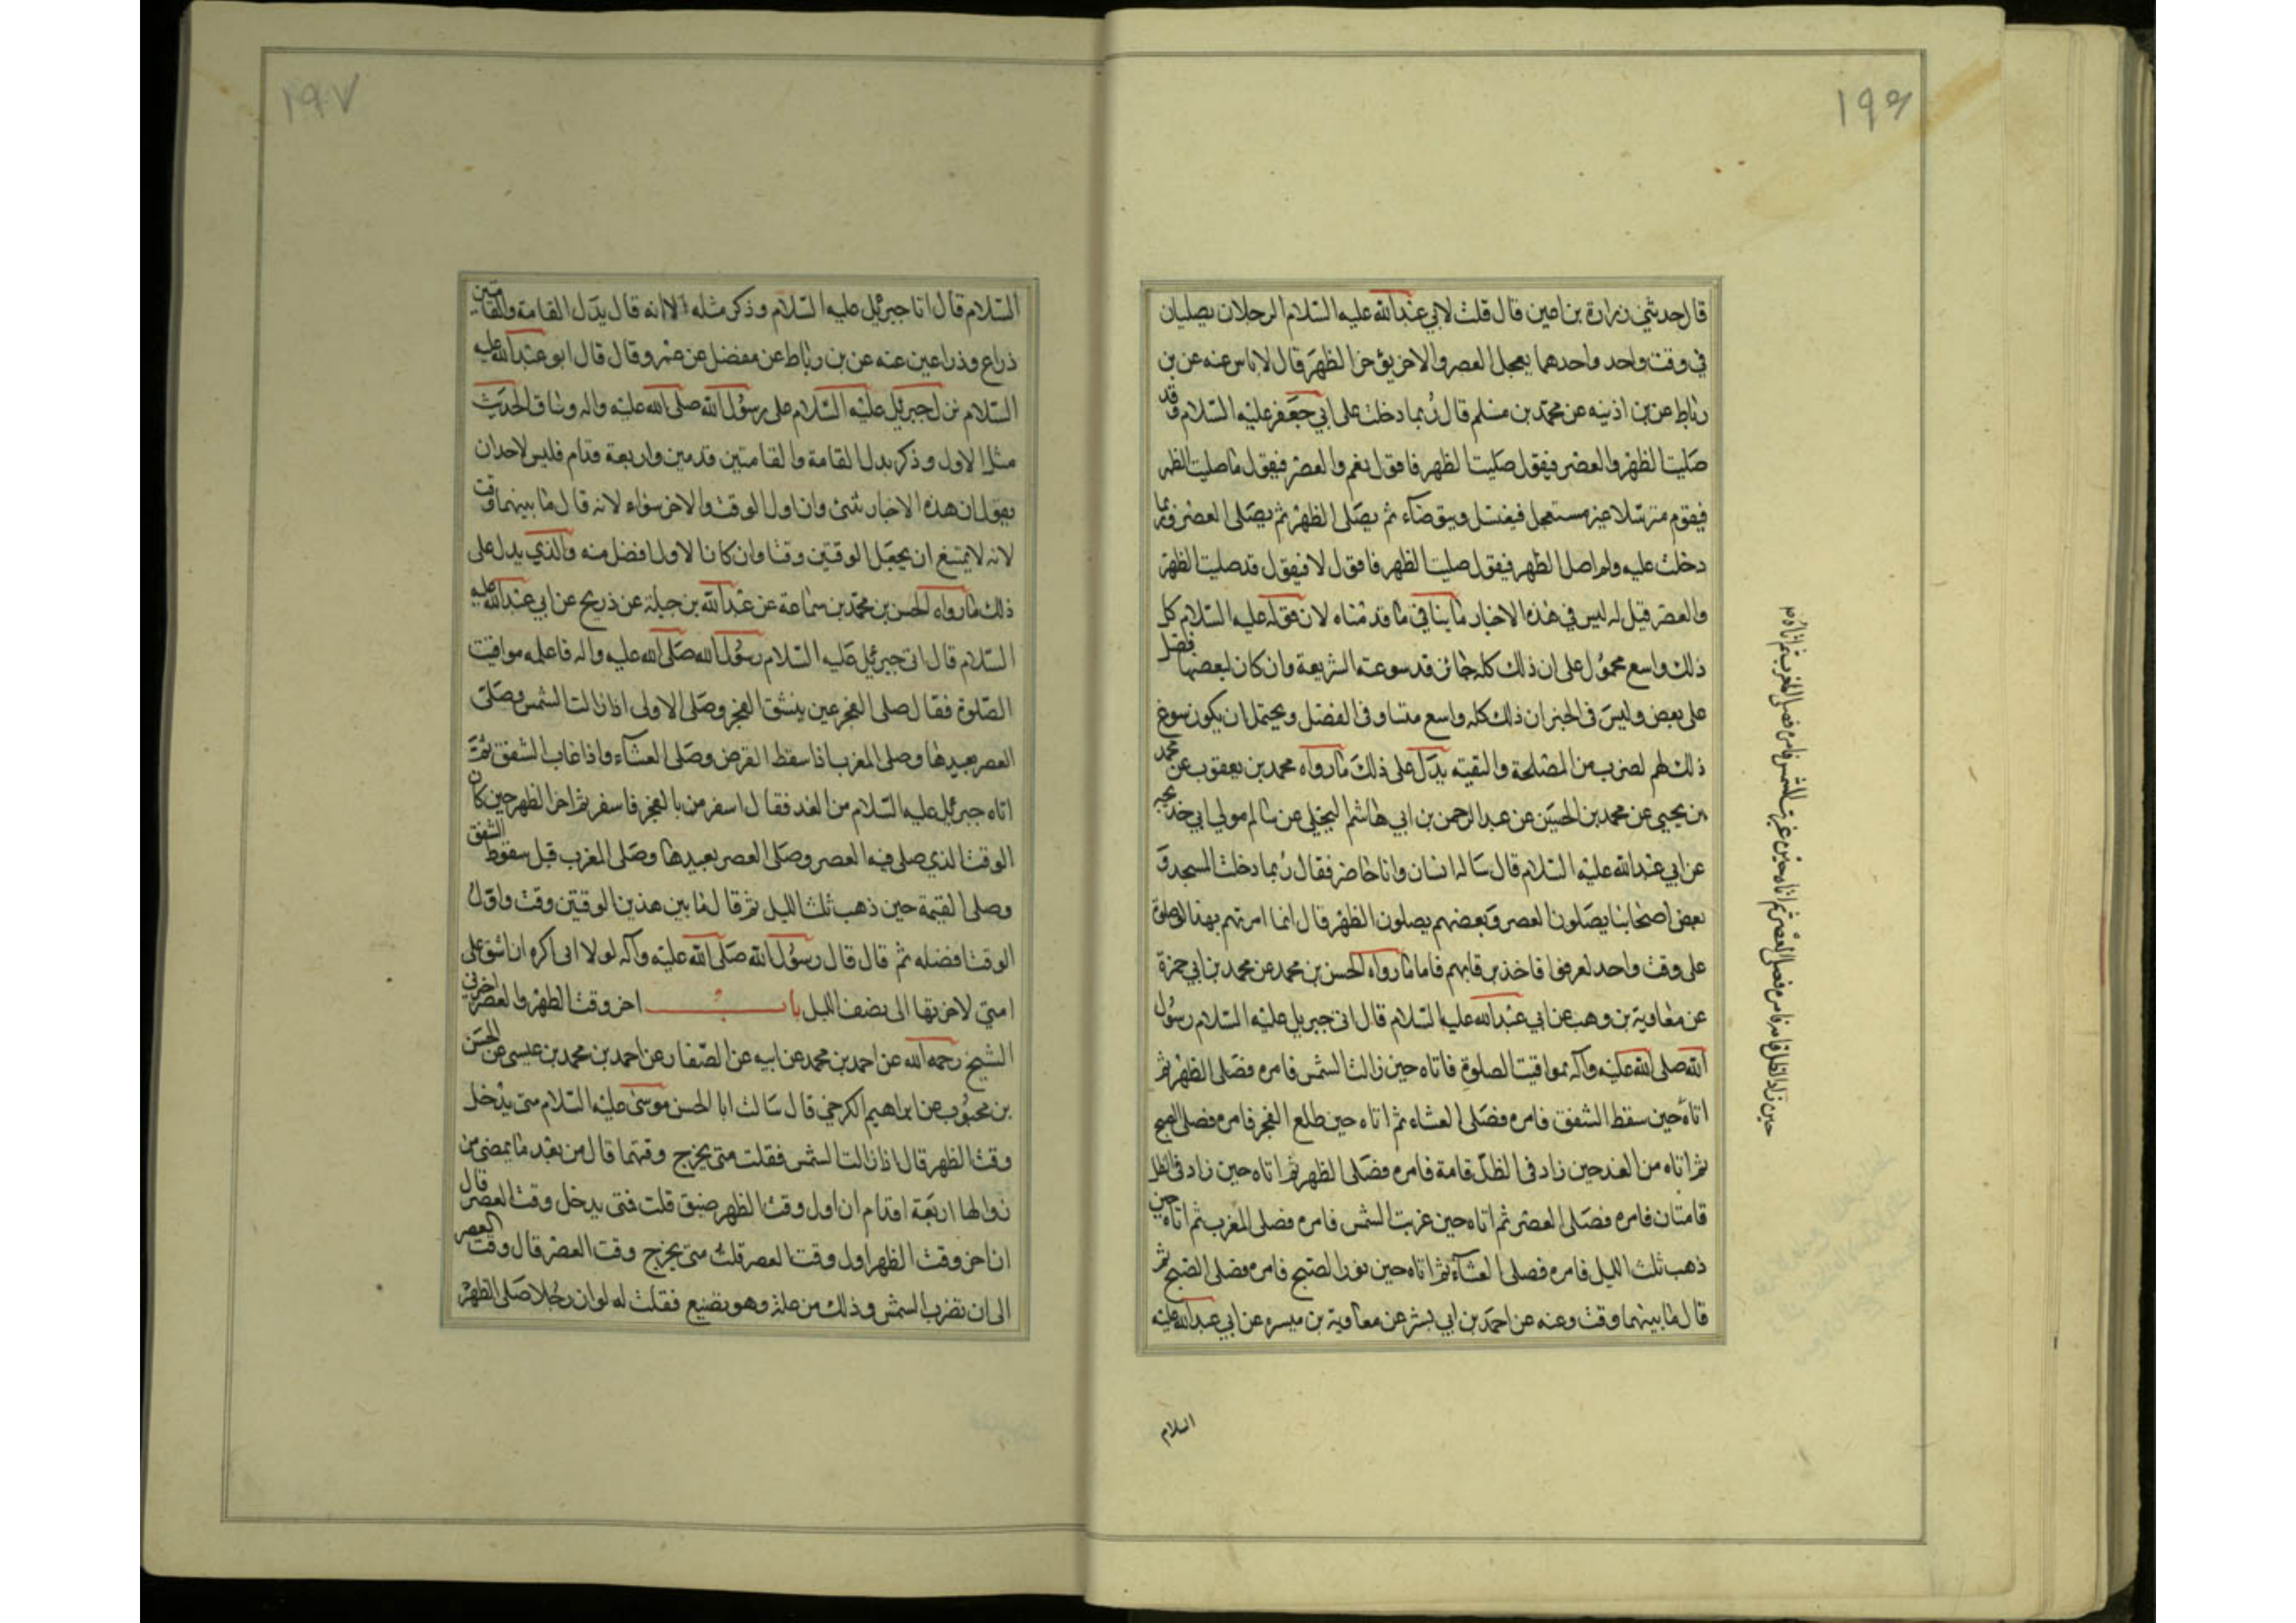 ١٩٦
قال حدثني زرارة بن اعين قال قلت لابي عبد الله عليه السلام الرجلان يصليان
في وقت واحد واحدهما يعجل العصر والاخر يؤخر الظهر قال لا باس عنه عن بن
رباط عن بن اذينه عن محمد بن مسلم قال ربما دخلت على ابي جعفر عليه السلام وقد
صليت الظهر والعصر فيقول صليت الظهر فاقول نعم والعصر فيقول ما صليت الظهر
فيقوم مترسلا غير مستعجل فيغتسل ويتوضاء ثم يصلى الظهر ثم يصلى العصر وربما
دخلت عليه ولم اصل الظهر فيقول صليت الظهر فاقول لا فيقول قد صليت الظهر
والعصر قيل له ليس في هذه الاخبار ما ينافي ما قدمناه لان قوله عليه السلام كل
ذلك واسع محمول على ان ذلك كله جائز قد سوغته الشريعة وان كان لبعضها فضل
على بعض وليس فى الخبر ان ذلك كله واسع متساو فى الفضل ويحتمل ان يكون سوغ
ذلك لهم لضرب من المصلحة والتقيته يدل على ذلك ما رواه محمد بن يعقوب عن محمد
بن يحيى عن محمد بن الحسين عن عبد الرحمن بن ابي هاشم البجلي عن سالم مولى ابي خديجه
عن ابي عبد الله عليه السلام قال ساله انسان وانا حاضر فقال ربما دخلت المسجد و
بعض اصحابنا يصلون العصر وبعضهم يصلون الظهر قال انما امرتهم بهذا لو صلوة
على وقت واحد لعرفوا فاخذ برقابهم فاما ما رواه الحسن بن محمد عن محمد بن ابي حمزة
عن معاوية بن وهب عن ابي عبد الله عليه السلام قال اتى جبريل عليه السلام رسول
الله صلى الله عليه وآله بمواقيت الصلوة فاتاه حين زالت الشمس فامره فصلى الظهر ثم
اتاه حين سقط الشفق فامره فصلى العشاء ثم اتاه حين طلع الفجر فامره فصلى الصبح
ثم اتاه من الغد حين زاد فى الظل قامة فامره فصلى الظهر ثم اتاه حين زاد فى الظل
قامتان فامره فصلى العصر ثم اتاه حين غربت الشمس فامره فصلى المغرب ثم اتاه حين
ذهب ثلث الليل فامره فصلى العشاء ثم اتاه حين نور الصبح فامره فصلى الصبح ثم
قال ما بينهما وقت وعنه عن احمد بن ابي بشر عن معاوية بن ميسره عن ابي عبد الله عليه
السلام
حين زاد الظل قامه فامره فصلى العصر ثم اتاه حين غربت الشمس فامره فصلى المغرب ثم اتاه م
١٩٧
السلام قال اتا جبرئيل عليه السلام وذكر مثله الا انه قال بدل القامة والقامتين
ذراع وذراعين عنه عن بن رباط عن مفضل عن عمر وقال قال ابو عبد الله عليه
السلام نزل جبرئيل عليه السلام على رسول الله صلى الله عليه واله وساق الحديث
مثل الاول وذكر بدل القامة والقامتين قدمين واربعة قدام فليس لاحد ان
يقول ان هذه الاخبار تنبئ وان اول الوقت والاخر سواء لانه قال ما بينهما وقت
لانه لا يمتنع ان يجعل الوقتين وقتا وان كانا لاول افضل منه والذي يدل على
ذلك ما رواه الحسن بن محمد بن سماعة عن عبد الله بن جبلة عن ذريح عن ابي عبد الله عليه
السلام قال اتى جبرئيل عليه السلام رسول الله صلى الله عليه واله فاعلمه مواقيت
الصلوة فقال صلى الفجر عين ينشق الفجر وصلى الاولى اذا زالت الشمس وصلى
العصر بعيدها وصلى المغرب اذا سقط القرص وصلى العشاء واذا غاب الشفق ثمت
اتاه جبرئيل عليه السلام من الغد فقال اسفر من بالفجر فاسفر ثم اخر الظهر حين كان
الوقت الذي صلى فيه العصر وصلى العصر بعيدها وصلى المغرب قبل سقوط الشفق
وصلى القيمة حين ذهب ثلث الليل ثم قال ما بين هذين الوقتين وقت واول
الوقت افضله ثم قال قال رسول الله صلى الله عليه وآله لولا انى اكره ان اشق على
امتي لاخرتها الى نصف الليل باب اخر وقت الظهر والعصر اخبرني
الشيخ رحمه الله عن احمد بن محمد عن ابيه عن الصفار عن احمد بن محمد بن عيسى عن الحسن
بن محبوب عن ابراهيم الكرخي قال سالت ابا الحسن موسى عليه السلام متى يدخل
وقت الظهر قال اذا زالت الشمس فقلت متى يخرج وقتها قال من بعد ما يمضى من
زوالها اربعة اقدام ان اول وقت الظهر ضيق قلت فمتى يدخل وقت العصر قال
ان اخر وقت الظهر اول وقت العصر قلت متى يخرج وقت العصر قال وقت العصر
الى ان تغرب الشمس وذلك من علة وهو تضيع فقلت له لو ان رجلا صلى الظهر